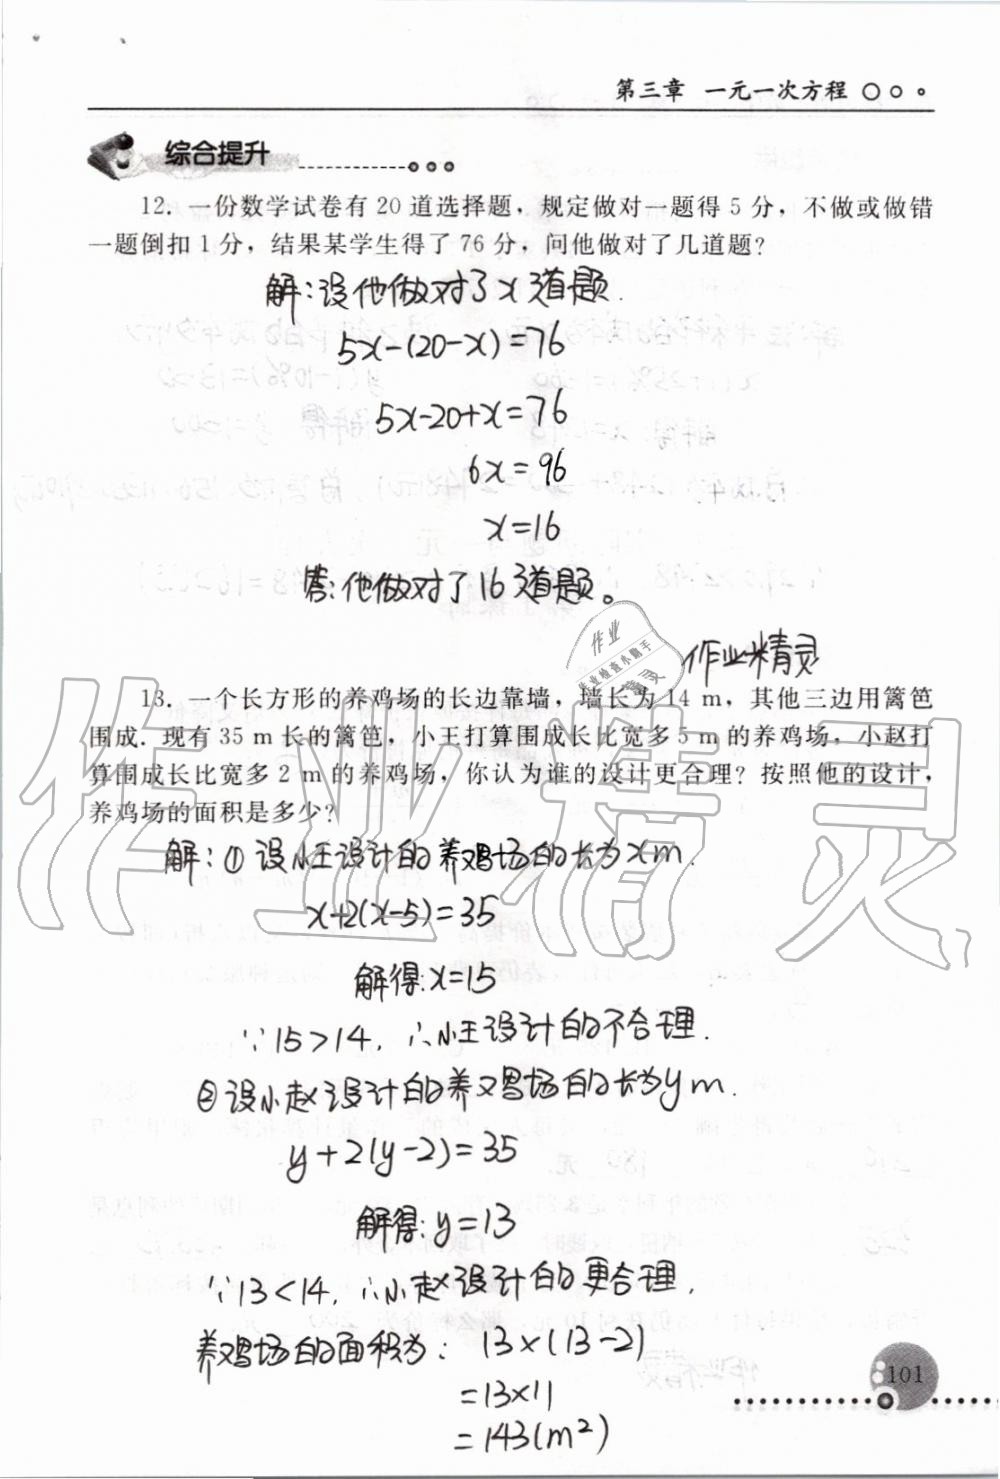 第三章 一元一次方程
综合提升
12. 一份数学试卷有 20 道选择题，规定做对一题得 5 分，不做或做错
一题倒扣 1 分，结果某学生得了 76 分，问他做对了几道题？
解：设他做对了x道题.
5x-(20-x)=76
5x-20+x=76
6x=96
x=16
答：他做对了16道题。
作业
作业检查小助手
精灵
作业精灵
13. 一个长方形的养鸡场的长边靠墙，墙长为 14 m，其他三边用篱笆
围成. 现有 35 m 长的篱笆，小王打算围成长比宽多 5 m 的养鸡场，小赵打
算围成长比宽多 2 m 的养鸡场，你认为谁的设计更合理？按照他的设计，
养鸡场的面积是多少？
作业精灵
解：①设小王设计的养鸡场的长为xm.
x+2(x-5)=35
解得:x=15
∵15>14, ∴小王设计的不合理.
②设小赵设计的养鸡场的长为ym.
y+2(y-2)=35
解得:y=13
∵13<14, ∴小赵设计的更合理,
养鸡场的面积为：13×(13-2)
=13×11
=143(m²)
101